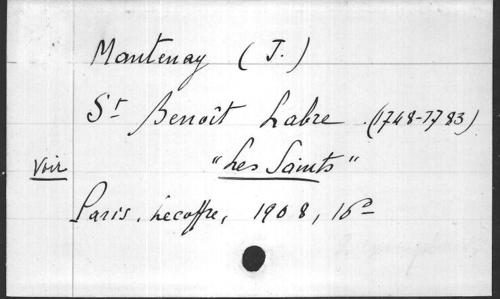 Mantenay (J.)
St Benoît Labre (1748-1783)
Voir "Les Saints"
Paris, Lecoffre, 1908, 16°